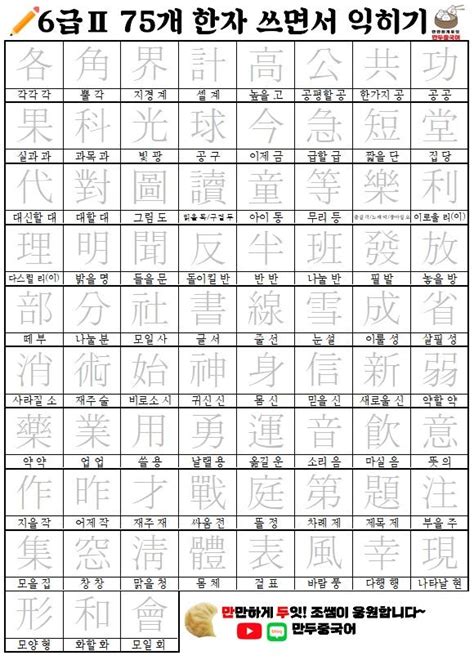 6급Ⅱ 75개 한자 쓰면서 익히기
만두중국어
各 角 界 計 高 公 共 功
각각 각 뿔 각 지경 계 셀 계 높을 고 공평할 공 한가지 공 공 공
果 科 光 球 今 急 短 堂
실과 과 과목 과 빛 광 공 구 이제 금 급할 급 짧을 단 집 당
代 對 圖 讀 童 等 樂 利
대신할 대 대할 대 그림 도 읽을 독/구절 두 아이 동 무리 등 이로울 리(이)
理 明 聞 反 半 班 發 放
다스릴 리(이) 밝을 명 들을 문 돌이킬 반 반 반 나눌 반 필 발 놓을 방
部 分 社 書 線 雪 成 省
떼 부 나눌 분 모일 사 글 서 줄 선 눈 설 이룰 성 살필 성
消 術 始 神 身 信 新 弱
사라질 소 재주 술 비로소 시 귀신 신 몸 신 믿을 신 새로울 신 약할 약
藥 業 用 勇 運 音 飮 意
약 약 업 업 쓸 용 날랠 용 옮길 운 소리 음 마실 음 뜻 의
作 昨 才 戰 庭 第 題 注
지을 작 어제 작 재주 재 싸움 전 뜰 정 차례 제 제목 제 부을 주
集 窓 淸 體 表 風 幸 現
모을 집 창 창 맑을 청 몸 체 겉 표 바람 풍 다행 행 나타날 현
形 和 會
모양 형 화할 화 모일 회
만만하게 두잇! 조쌤이 응원합니다~
만두중국어